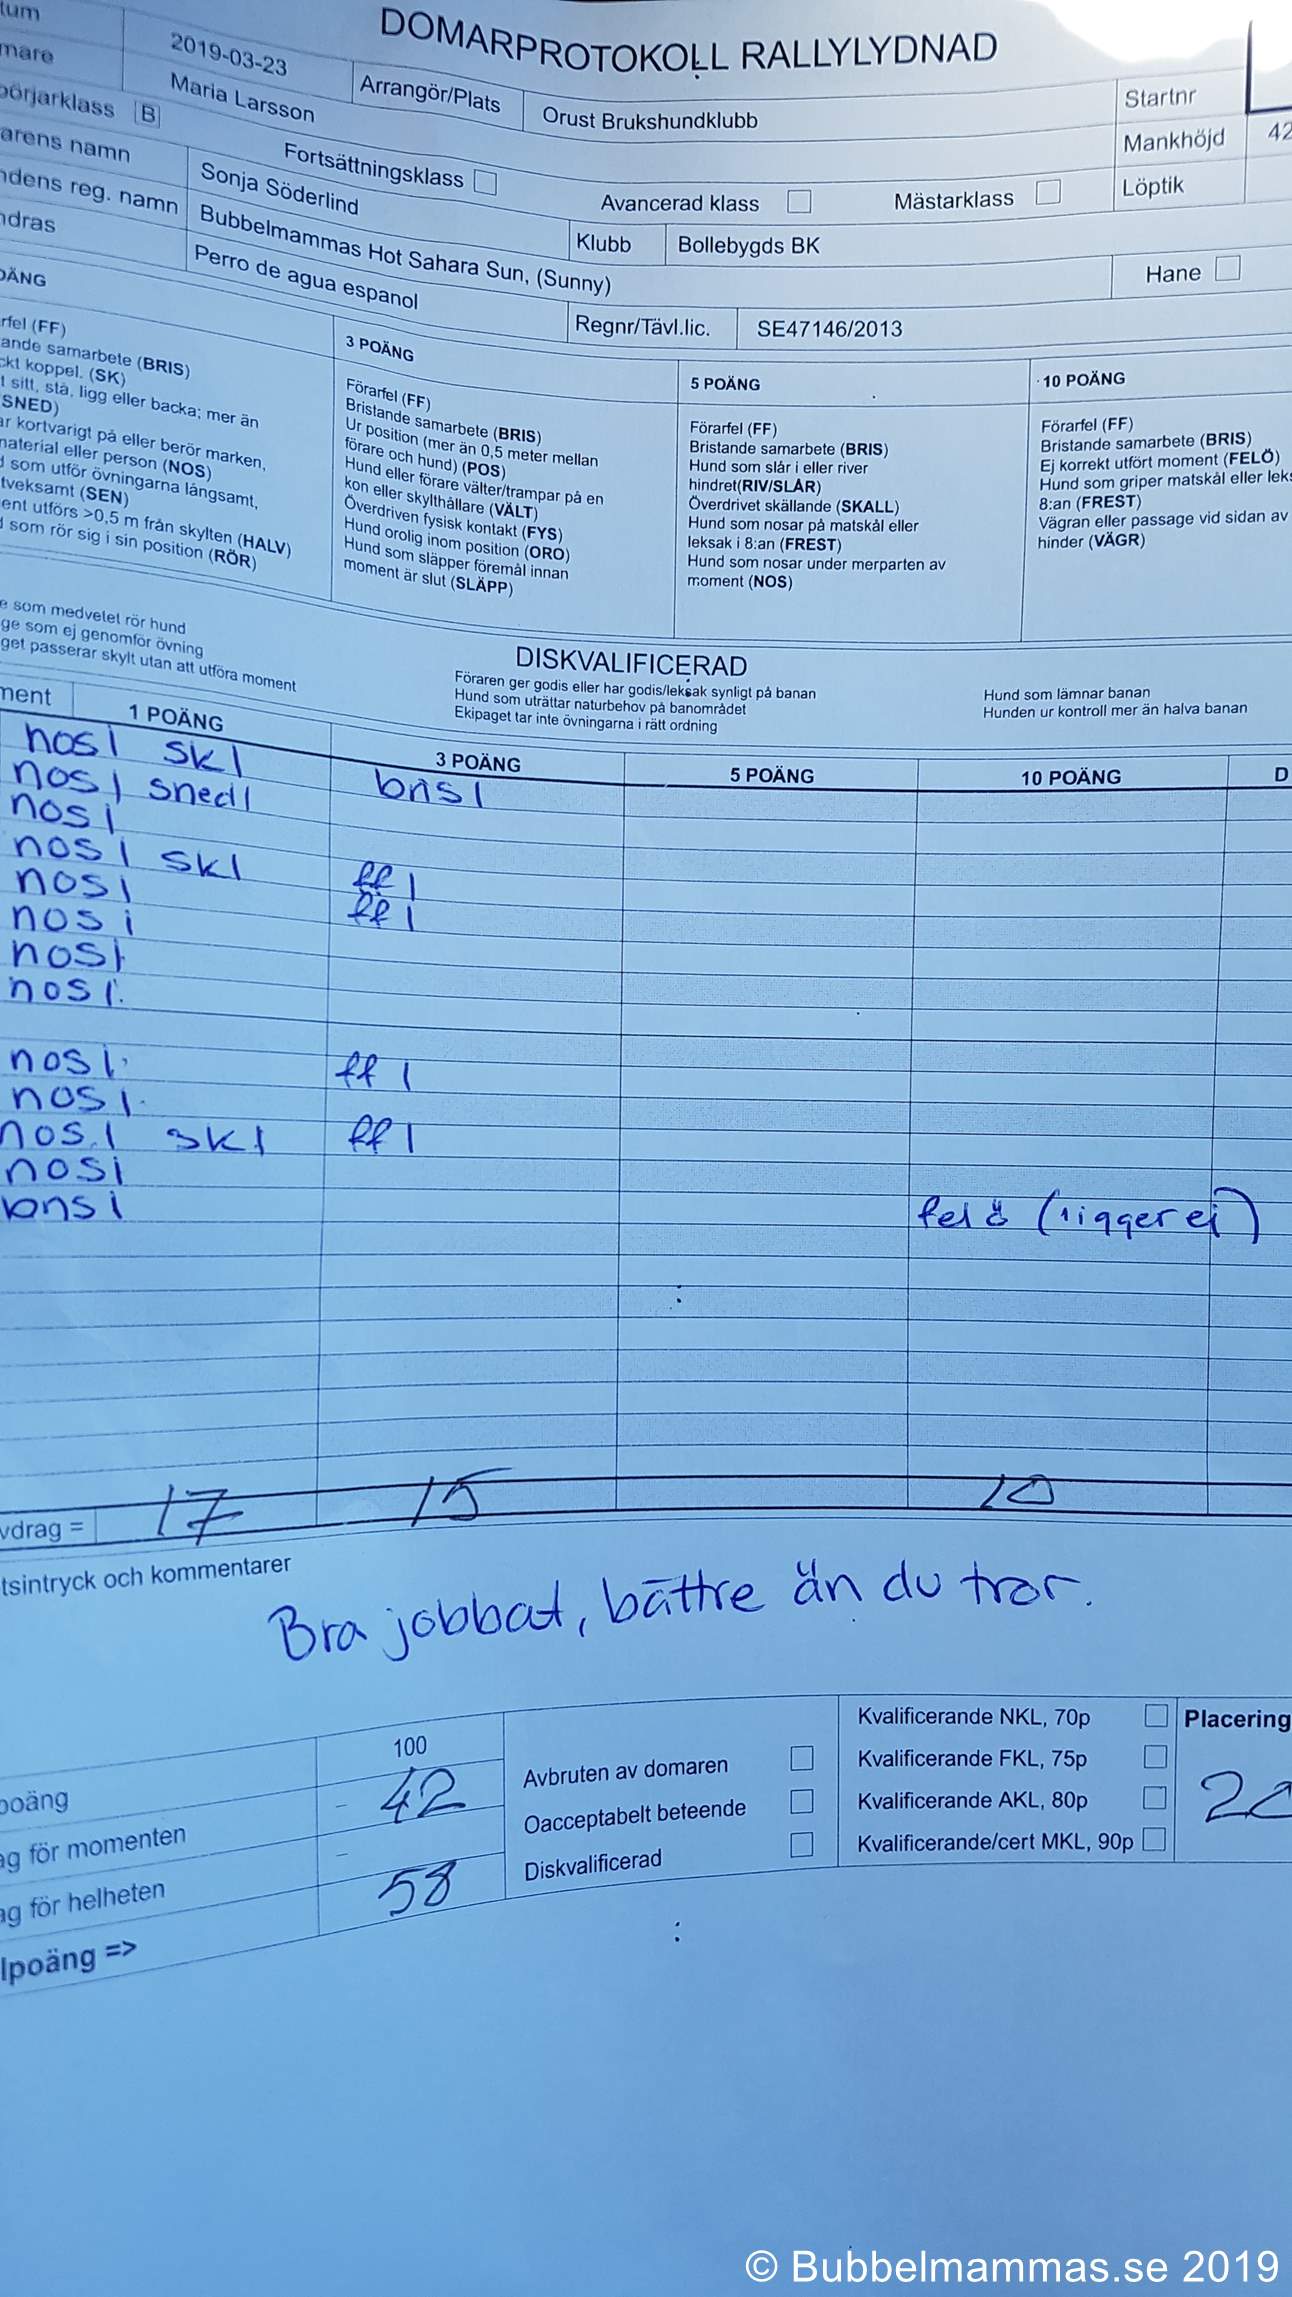 DOMARPROTOKOLL RALLYLYDNAD
2019-03-23 Arrangör/Plats Orust Brukshundklubb Startnr
Maria Larsson Mankhöjd 42
B Fortsättningsklass Avancerad klass Mästarklass Löptik
Sonja Söderlind Klubb Bollebygds BK
reg. namn Bubbelmammas Hot Sahara Sun, (Sunny) Hane
Perro de agua espanol Regnr/Tävl.lic. SE47146/2013
3 POÄNG
Förarfel (FF)
Bristande samarbete (BRIS)
Ur position (mer än 0,5 meter mellan
förare och hund) (POS)
Hund eller förare välter/trampar på en
kon eller skylthållare (VÄLT)
Överdriven fysisk kontakt (FYS)
Hund orolig inom position (ORO)
Hund som släpper föremål innan
moment är slut (SLÄPP)
5 POÄNG
Förarfel (FF)
Bristande samarbete (BRIS)
Hund som slår i eller river
hindret(RIV/SLÅR)
Överdrivet skällande (SKALL)
Hund som nosar på matskål eller
leksak i 8:an (FREST)
Hund som nosar under merparten av
moment (NOS)
10 POÄNG
Förarfel (FF)
Bristande samarbete (BRIS)
Ej korrekt utfört moment (FELÖ)
Hund som griper matskål eller leks
8:an (FREST)
Vägran eller passage vid sidan av
hinder (VÄGR)
rfel (FF)
ande samarbete (BRIS)
ckt koppel. (SK)
t sitt, stå, ligg eller backa; mer än
SNED)
ar kortvarigt på eller berör marken,
material eller person (NOS)
d som utför övningarna långsamt,
tveksamt (SEN)
ent utförs >0,5 m från skylten (HALV)
d som rör sig i sin position (RÖR)
e som medvetet rör hund
ge som ej genomför övning
get passerar skylt utan att utföra moment
DISKVALIFICERAD
Föraren ger godis eller har godis/leksak synligt på banan
Hund som uträttar naturbehov på banområdet
Ekipaget tar inte övningarna i rätt ordning
Hund som lämnar banan
Hunden ur kontroll mer än halva banan
ment 1 POÄNG 3 POÄNG 5 POÄNG 10 POÄNG D
nos1 sk1
nos1 sned1 bris1
nos1
nos1 sk1 ff 1
nos1 ff 1
nos1
nos1
nos1
nos1 ff 1
nos1
nos1 sk1 ff 1
nos1
bris1 felö (ligger ej)
vdrag = 17 15 10
tsintryck och kommentarer
Bra jobbat, bättre än du tror.
poäng 100
ag för momenten – 42
ag för helheten –
lpoäng => 58
Avbruten av domaren
Oacceptabelt beteende
Diskvalificerad
Kvalificerande NKL, 70p
Kvalificerande FKL, 75p
Kvalificerande AKL, 80p
Kvalificerande/cert MKL, 90p
Placering
© Bubbelmammas.se 2019